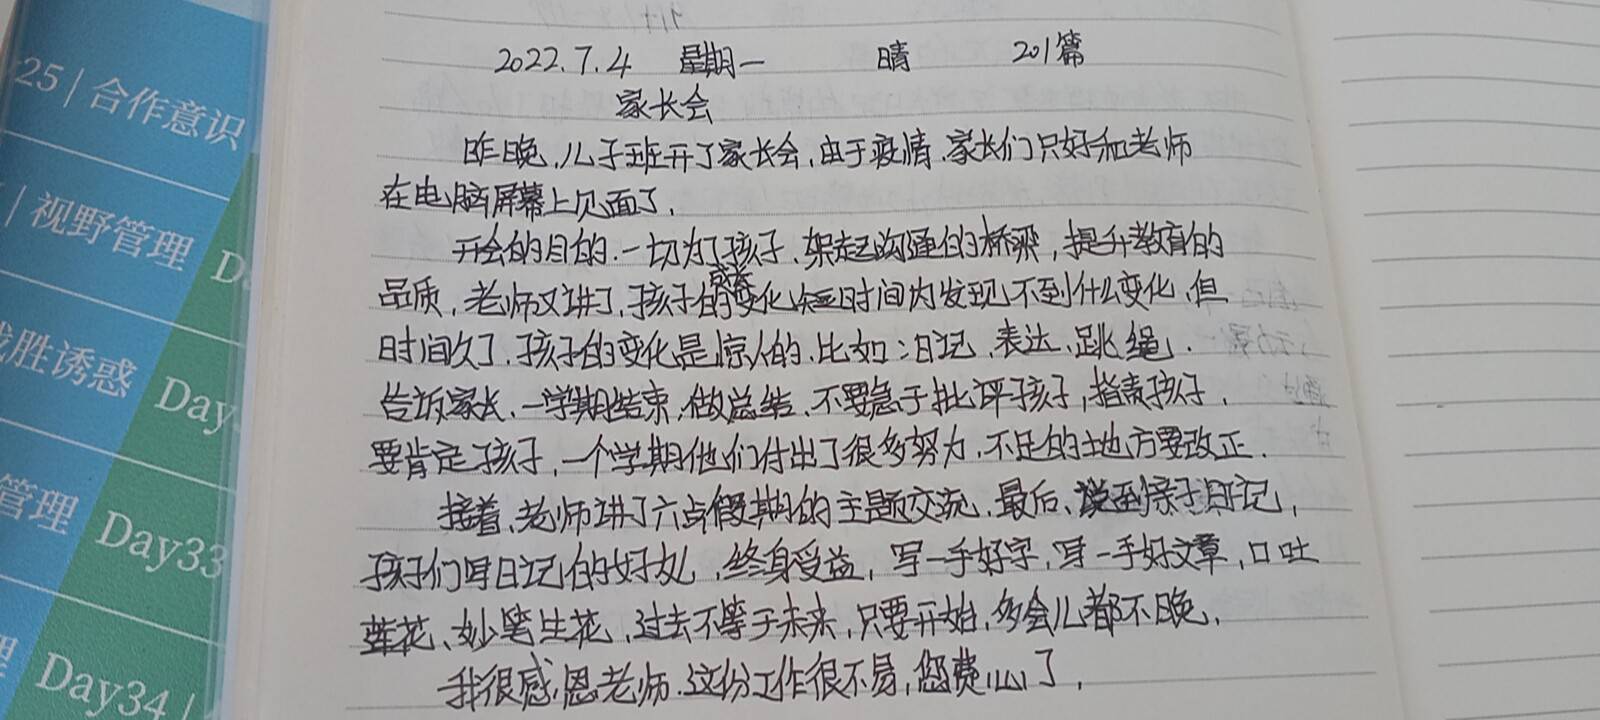 25 | 合作意识
| 视野管理
胜诱惑
Day
管理
Day33
理
Day34 |
2022.7.4 星期一 晴 201篇
家长会
昨晚,儿子班开了家长会,由于疫情,家长们只好和老师
在电脑屏幕上见面了.
开会的目的.一切为了孩子、架起沟通的桥梁,提升教育的
品质,老师又讲了,孩子的成长变化短时间内发现不到什么变化,但
时间久了,孩子的变化是惊人的.比如:日记、表达、跳绳.
告诉家长,一学期结束,做总结,不要急于批评孩子,指责孩子,
要肯定孩子,一个学期他们付出了很多努力,不足的地方要改正.
接着,老师讲了六点假期的主题交流,最后、谈到亲子日记,
孩子们写日记的好处,终身受益,写一手好字,写一手好文章,口吐
莲花、妙笔生花,过去不等于未来,只要开始,多会儿都不晚,
我很感恩老师.这份工作很不易,您费心了,